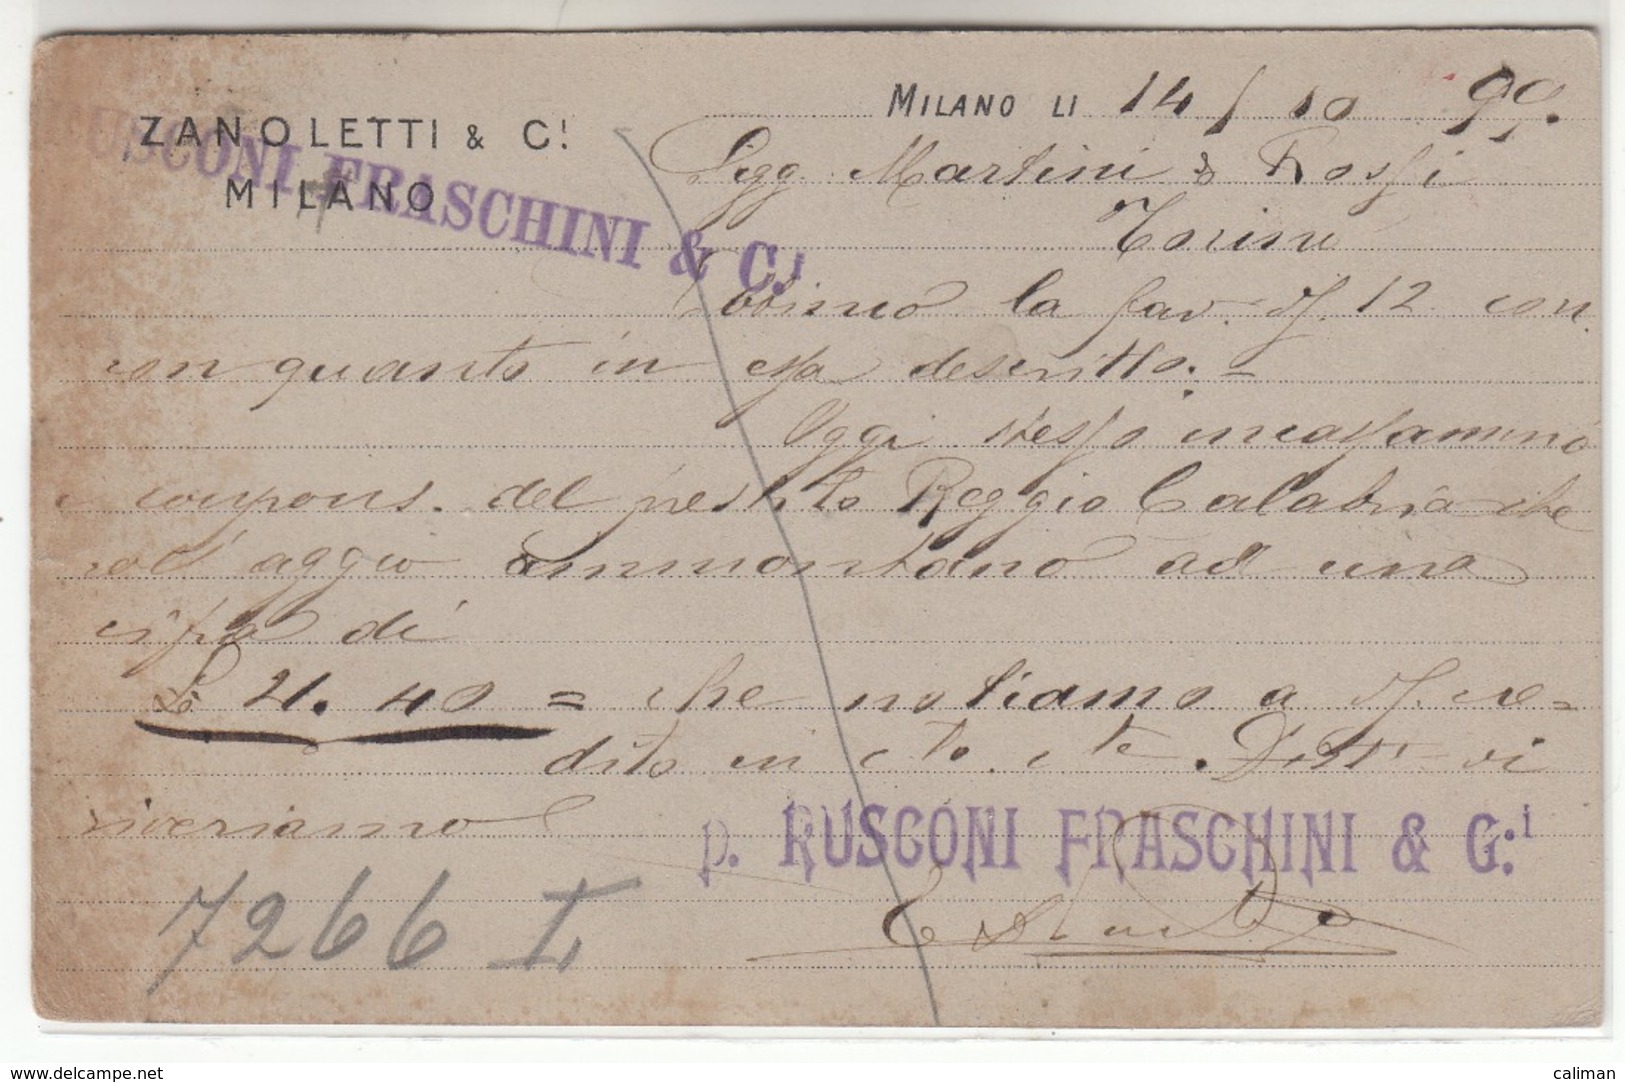 ZANOLETTI & C!
MILANO
RUSCONI FRASCHINI & C.i
MILANO LI 14/10 99.
Sigg. Martini & Rossi
Torino
Ebbimo la fav. Vs. 12 con.
con quanto in essa descritto. =
Oggi stesso incassammo
i coupons. del prestito Reggio Calabria che
coll' aggio ammontano ad una
cifra di
L. 21. 40 = che notiamo a Vs. cre=
dito in cto. cte. Dist. vi
riveriamo
p. RUSCONI FRASCHINI & C.i
7266 I
www.delcampe.net
caliman